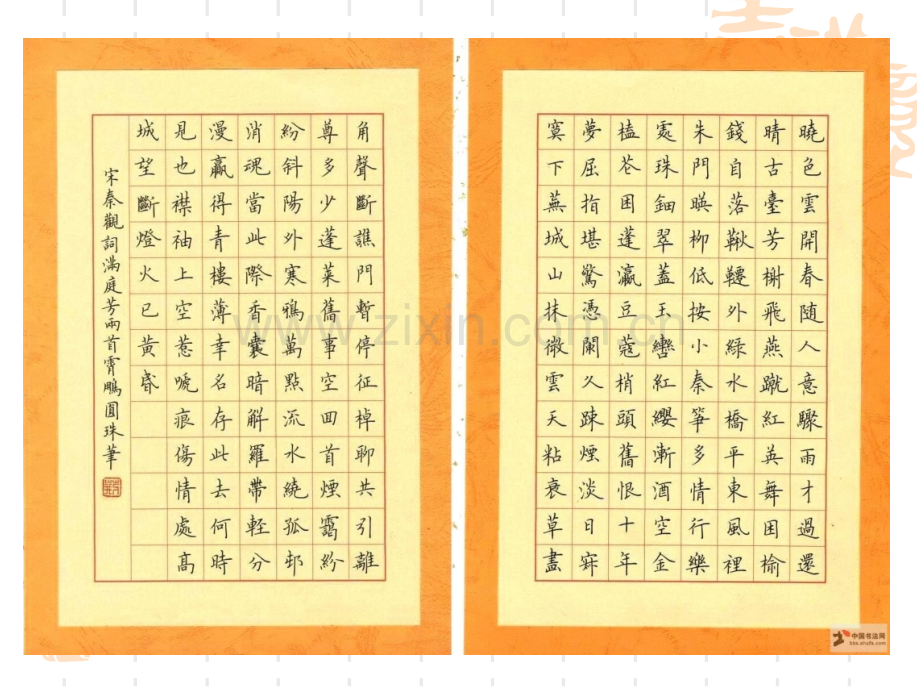 曉色雲開春隨人意驟雨才過還
晴古臺芳榭飛燕蹴紅英舞困榆
錢自落鞦韆外綠水橋平東風裡
朱門暎柳低按小秦箏多情行樂
處珠鈿翠蓋玉轡紅纓漸酒空金
榼花困蓬瀛豆蔻梢頭舊恨十年
夢屈指堪驚憑闌久踈煙淡日寂
寞下蕪城山抹微雲天粘衰草畫
角聲斷譙門暫停征棹聊共引離
尊多少蓬萊舊事空回首煙靄紛
紛斜陽外寒鴉萬點流水繞孤邨
消魂當此際香囊暗解羅帶輕分
漫贏得青樓薄幸名存此去何時
見也襟袖上空惹嗁痕傷情處高
城望斷燈火已黃昏
宋秦觀詞滿庭芳兩首霄鵬圓珠筆
www.zixin.com.cn
中国书法网